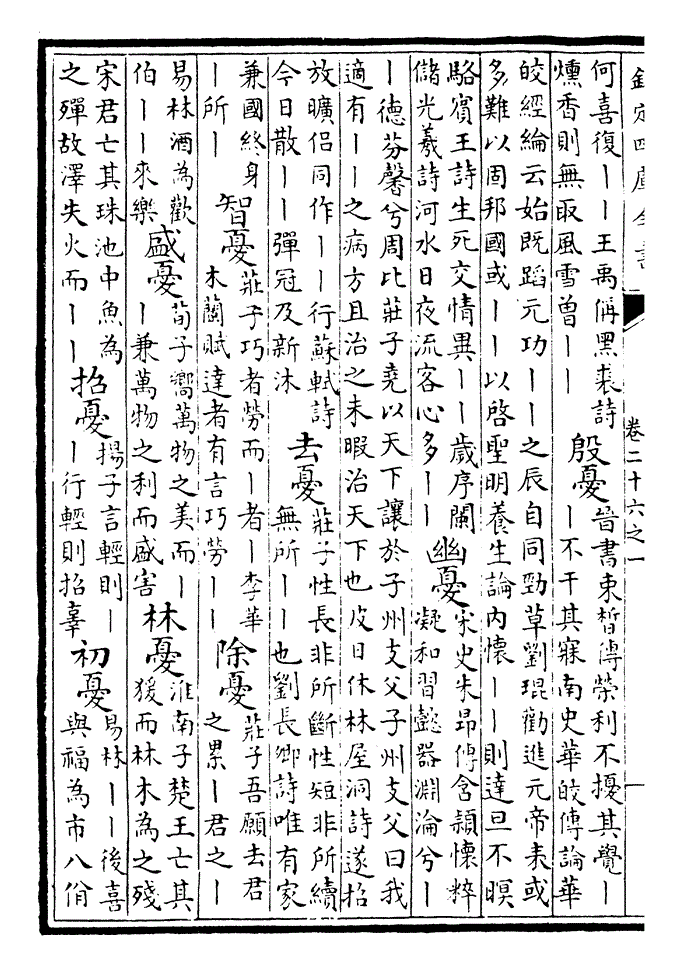 欽定四庫全書 卷二十六之一 一
何喜復丨丨王禹偁黑裘詩
燻香則無取風雪曾丨丨
殷憂
晉書束皙傳榮利不擾其覺丨
丨不干其寐南史華皎傳論華
皎經綸云始既蹈元功丨丨之辰自同勁草劉琨勸進元帝表或
多難以固邦國或丨丨以啓聖明養生論內懷丨丨則達旦不暝
駱賓王詩生死交情異丨丨歲序闌
儲光羲詩河水日夜流客心多丨丨
幽憂
宋史朱昂傳含穎懷粹
凝和習懿器淵淪兮丨
丨德芬馨兮周比莊子堯以天下讓於子州支父子州支父曰我
適有丨丨之病方且治之未暇治天下也皮日休林屋洞詩遂招
放曠侶同作丨丨行蘇軾詩
今日散丨丨彈冠及新沐
去憂
莊子性長非所斷性短非所續
無所丨丨也劉長卿詩唯有家
兼國終身
丨所丨
智憂
莊子巧者勞而丨者丨李華
木蘭賦達者有言巧勞丨丨
除憂
莊子吾願去君
之累丨君之丨
易林酒為歡
伯丨丨來樂
盛憂
荀子嚮萬物之美而丨
丨兼萬物之利而盛害
林憂
淮南子楚王亡其
猨而林木為之殘
宋君亡其珠池中魚為
之殫故澤失火而丨丨
招憂
揚子言輕則丨
丨行輕則招辜
初憂
易林丨丨後喜
與福為市八佾